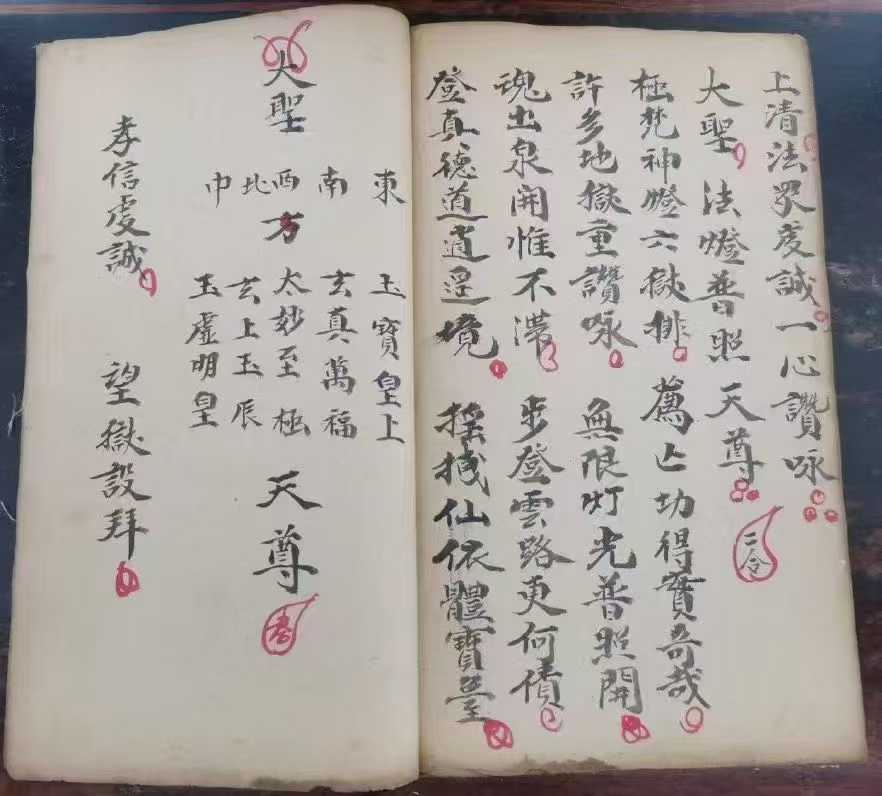 上清法眾虔誠一心讚咏
大聖法燈普照天尊
极梵神燈六獄排 薦亡功得寶奇哉
許多地獄重讚咏 無限灯光普照開
魂出泉開惟不滯 步登雲路更何債
登真德道逍遥境 摇拽仙依體寶臺
東 玉寶皇上
南 玄真萬福
大聖 西方 太妙至極 天尊
北 玄上玉辰
中 玉虛明皇
孝信虔誠 望獄設拜